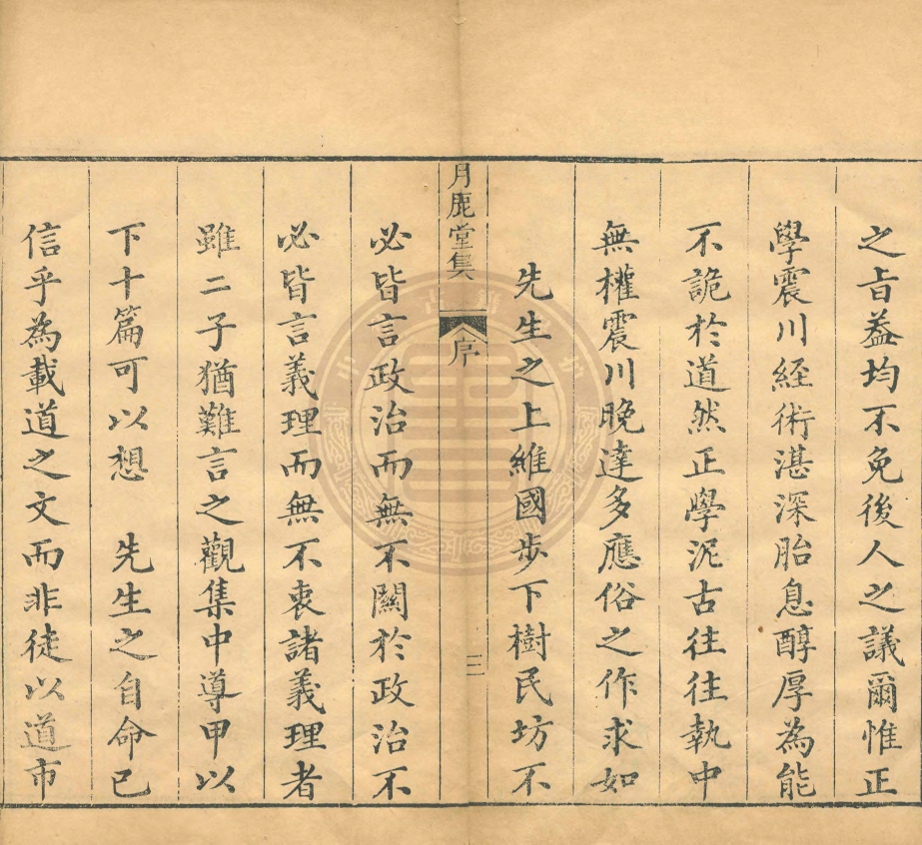 之旨葢均不免後人之議爾惟正
學震川經術湛深胎息醇厚為能
不詭於道然正學泥古往往執中
無權震川晚達多應俗之作求如
先生之上維國步下樹民坊不
月鹿堂集 序 二
必皆言政治而無不關於政治不
必皆言義理而無不衷諸義理者
雖二子猶難言之觀集中導甲以
下十篇可以想 先生之自命已
信乎為載道之文而非徒以道市